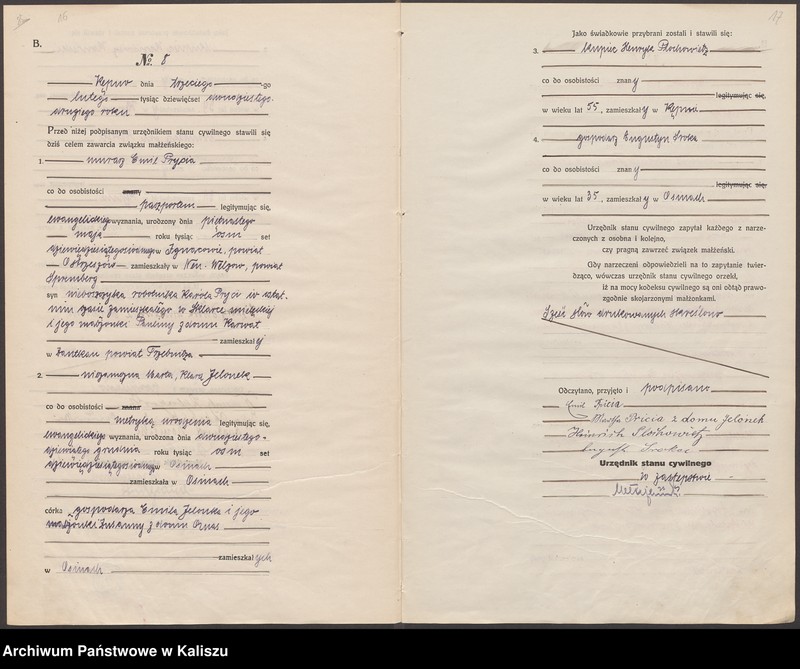 16
B.
№ 8
Kępno dnia trzeciego -go
lutego tysiąc dziewięćset dwudziestego
drugiego roku
Przed niżej podpisanym urzędnikiem stanu cywilnego stawili się
dziś celem zawarcia związku małżeńskiego:
1. murarz Emil Prycia
co do osobistości znany
paszportem legitymując się,
ewangelickiego wyznania, urodzony dnia piętnastego
maja roku tysiąc ośm set
dziewięćdziesiątegoósmego w Ignacowie, powiat
Ostrzeszów zamieszkały w Neu-Welzow, powiat
Spremberg
syn nieboszczyka robotnika Karola Pryci w ostat-
nim czasie zamieszkałego w Sklarce mielęckiej
i jego małżonki Pauliny z domu Karwat
zamieszkałej
w powiat Trzebnica
2. niezamężna Marta, Klara Jelonek
co do osobistości znana
metryką urodzenia legitymując się,
ewangelickiego wyznania, urodzona dnia dwudziestego-
dziewiątego grudnia roku tysiąc ośm set
dziewięćdziesiątego w Osinach
zamieszkała w Osinach
córka gospodarza Emila Jelonka i jego
małżonki Zuzanny z domu
zamieszkałych
w Osinach
17
Jako świadkowie przybrani zostali i stawili się:
3. kupiec Henryk Płochowietz
co do osobistości znany
legitymując się,
w wieku lat 55, zamieszkały w Kępnie
4. gospodarz Augustyn Sroka
co do osobistości znany
legitymując się,
w wieku lat 35, zamieszkały w Osinach
Urzędnik stanu cywilnego zapytał każdego z narze-
czonych z osobna i kolejno,
czy pragną zawrzeć związek małżeński.
Gdy narzeczeni odpowiedzieli na to zapytanie twier-
dząco, wówczas urzędnik stanu cywilnego orzekł,
iż na mocy kodeksu cywilnego są oni odtąd prawo-
zgodnie skojarzonymi małżonkami.
Sześć słów drukowanych skreślono
Odczytano, przyjęto i podpisano
Emil Pricia
Martha Pricia z domu Jelonek
Heinrich Plochowietz
August Srokae
Urzędnik stanu cywilnego
w zastępstwie
Archiwum Państwowe w Kaliszu